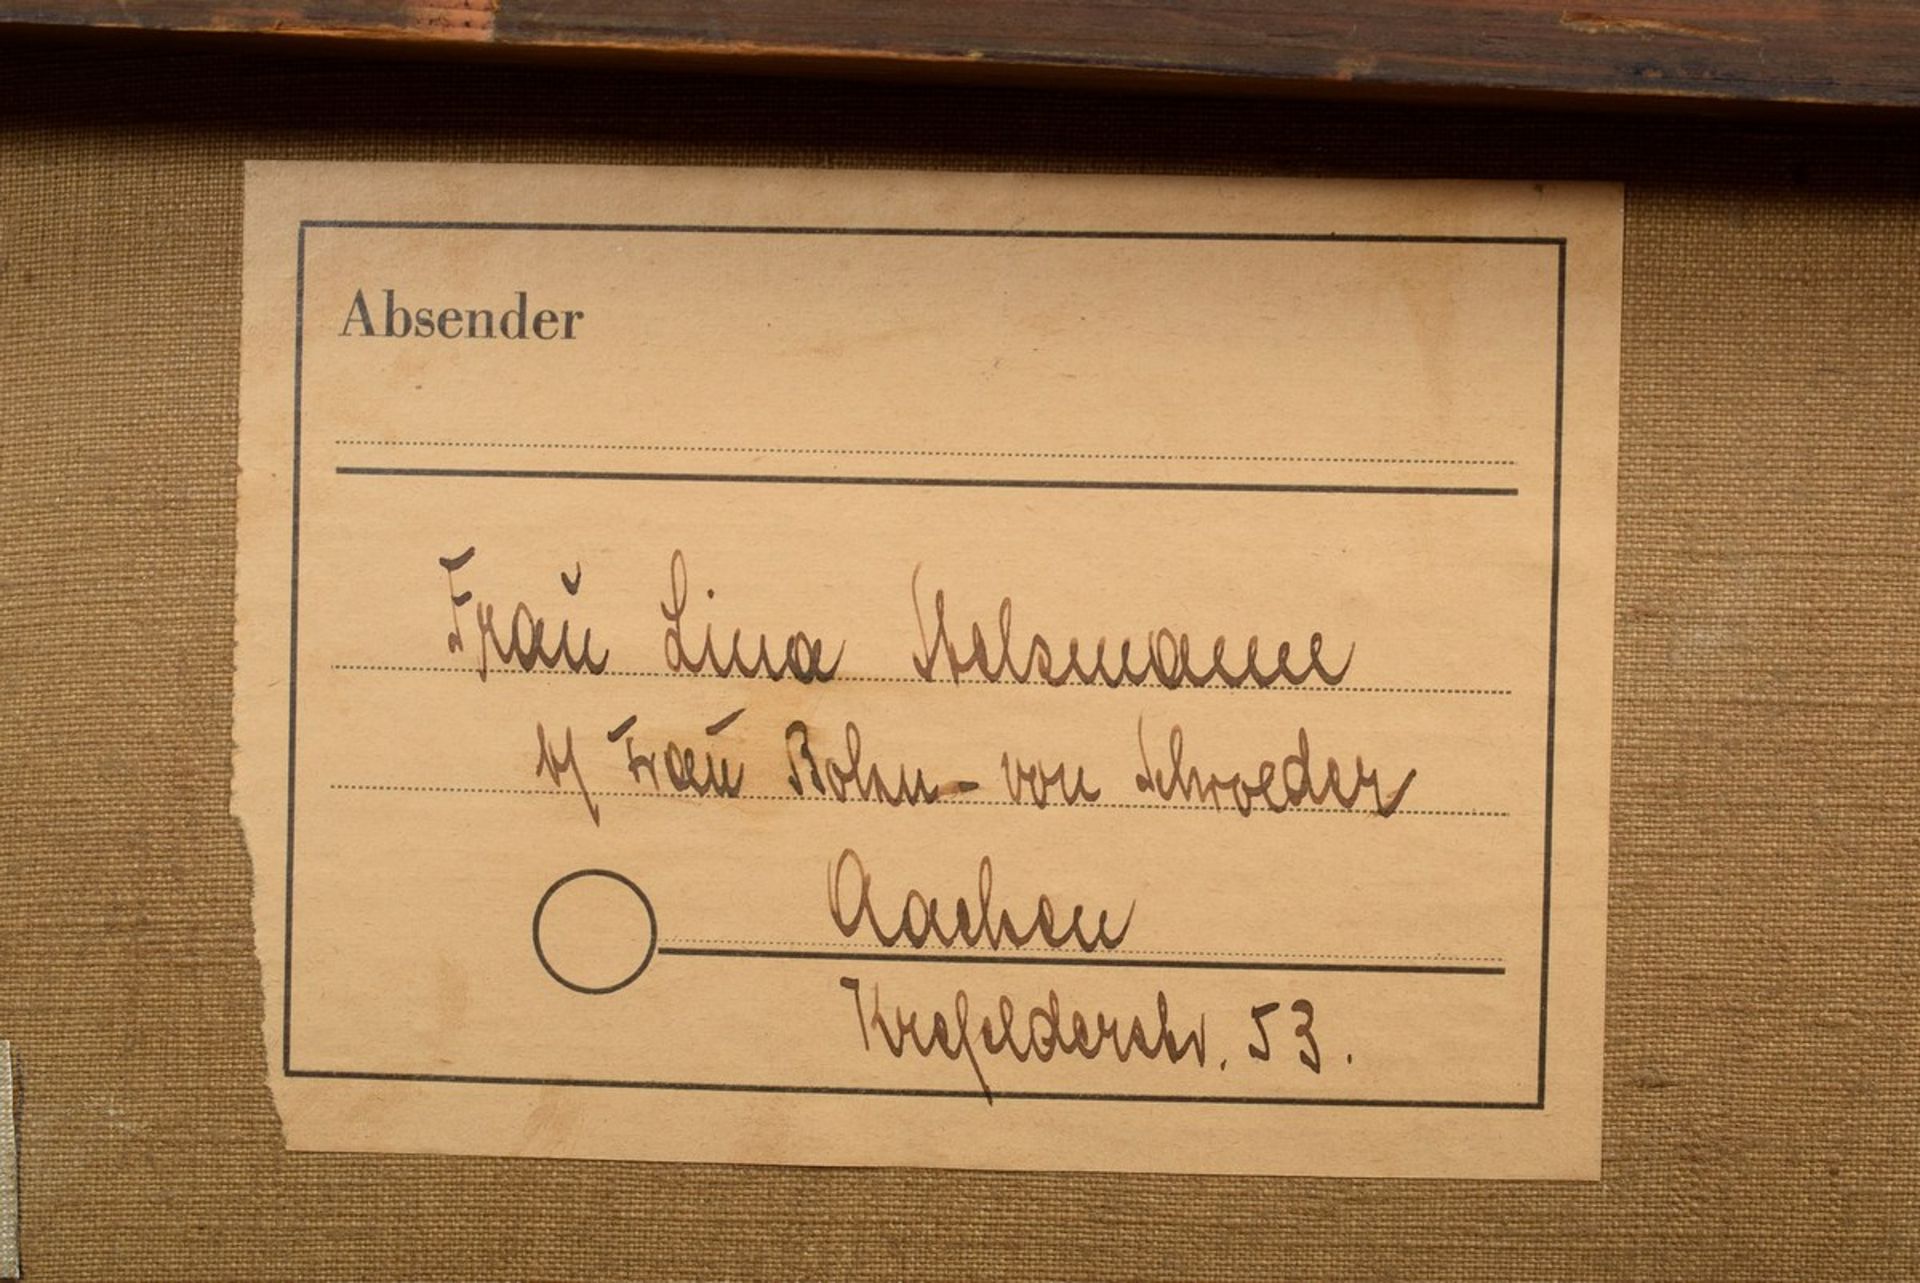 Absender
Frau Lina Stelzmann
b/ Frau Bohn - von Schroeder
Aachen
Krefelderstr. 53.